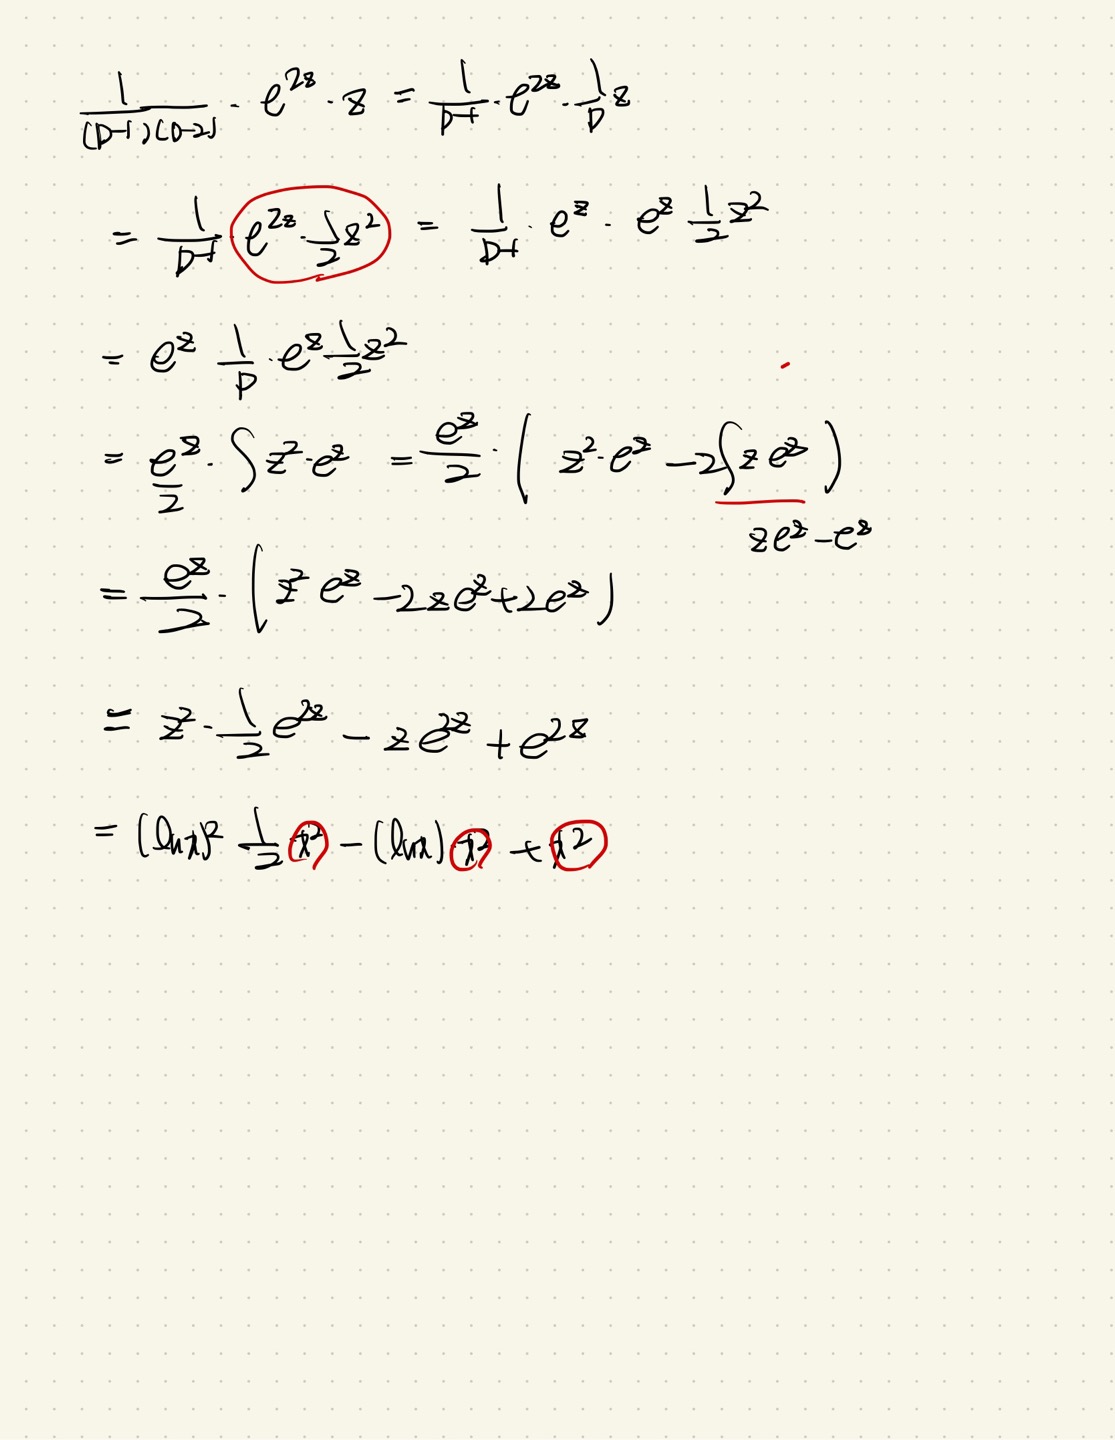 1/((D-1)(D-2)) · e^{2z} · z = 1/(D-1) · e^{2z} · 1/D z
= 1/(D-1) · e^{2z} · 1/2 z^2 = 1/(D-1) · e^z · e^z 1/2 z^2
= e^z 1/D · e^z 1/2 z^2
= e^z/2 · ∫ z^2 · e^z = e^z/2 · ( z^2 · e^z - 2∫ z e^z )
ze^z - e^z
= e^z/2 · ( z^2 e^z - 2ze^z + 2e^z )
= z^2 · 1/2 e^{2z} - z e^{2z} + e^{2z}
= (ln x)^2 1/2 x^2 - (ln x) x^2 + x^2